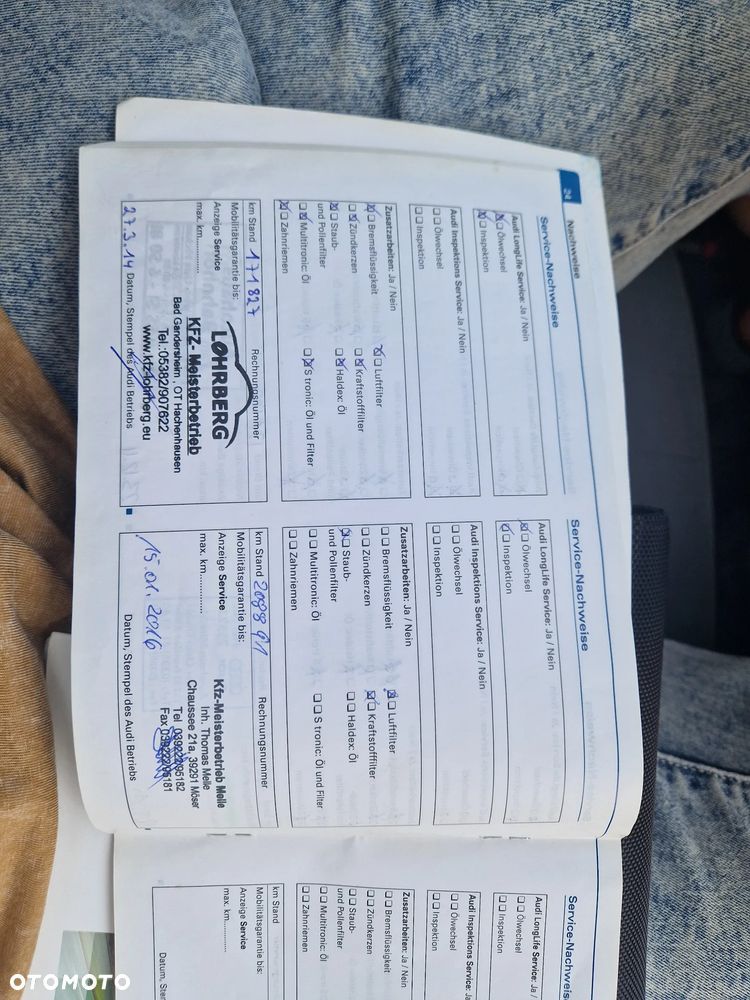 24 Nachweise
Service-Nachweise
Audi LongLife Service: Ja / Nein
Ölwechsel
Inspektion
Audi Inspektions Service: Ja / Nein
Ölwechsel
Inspektion
Zusatzarbeiten: Ja / Nein
Bremsflüssigkeit
Luftfilter
Zündkerzen
Kraftstofffilter
Staub-
und Pollenfilter
Haldex: Öl
Multitronic: Öl
S tronic: Öl und Filter
Zahnriemen
km Stand 171827
Rechnungsnummer
Mobilitätsgarantie bis:
Anzeige Service
max. km............
LOHRBERG
KFZ-Meisterbetrieb
Bad Gandersheim, OT Hachenhausen
Tel.:05382/907622
www.kfzlohrberg.eu
27.3.14
Datum, Stempel des Audi Betriebs
Service-Nachweise
Audi LongLife Service: Ja / Nein
Ölwechsel
Inspektion
Audi Inspektions Service: Ja / Nein
Ölwechsel
Inspektion
Zusatzarbeiten: Ja / Nein
Bremsflüssigkeit
Luftfilter
Zündkerzen
Kraftstofffilter
Staub-
und Pollenfilter
Haldex: Öl
Multitronic: Öl
S tronic: Öl und Filter
Zahnriemen
km Stand
Rechnungsnummer
Mobilitätsgarantie bis:
Anzeige Service
max. km............
Kfz-Meisterbetrieb Melle
Inh. Thomas Melle
Chaussee 21a, 39291 Möser
Tel 039222/95182
Fax 039222/95181
15.01.2016
Datum, Stempel des Audi Betriebs
Service-Nachwei
Audi LongLife Service: Ja /
Ölwechsel
Inspektion
Audi Inspektions Service: Ja
Ölwechsel
Inspektion
Zusatzarbeiten: Ja / Nein
Bremsflüssigkeit
Zündkerzen
Staub-
und Pollenfilter
Multitronic: Öl
Zahnriemen
km Stand
Mobilitätsgarantie bis:
Anzeige Service
max. km............
Datum, S
OTOMOTO